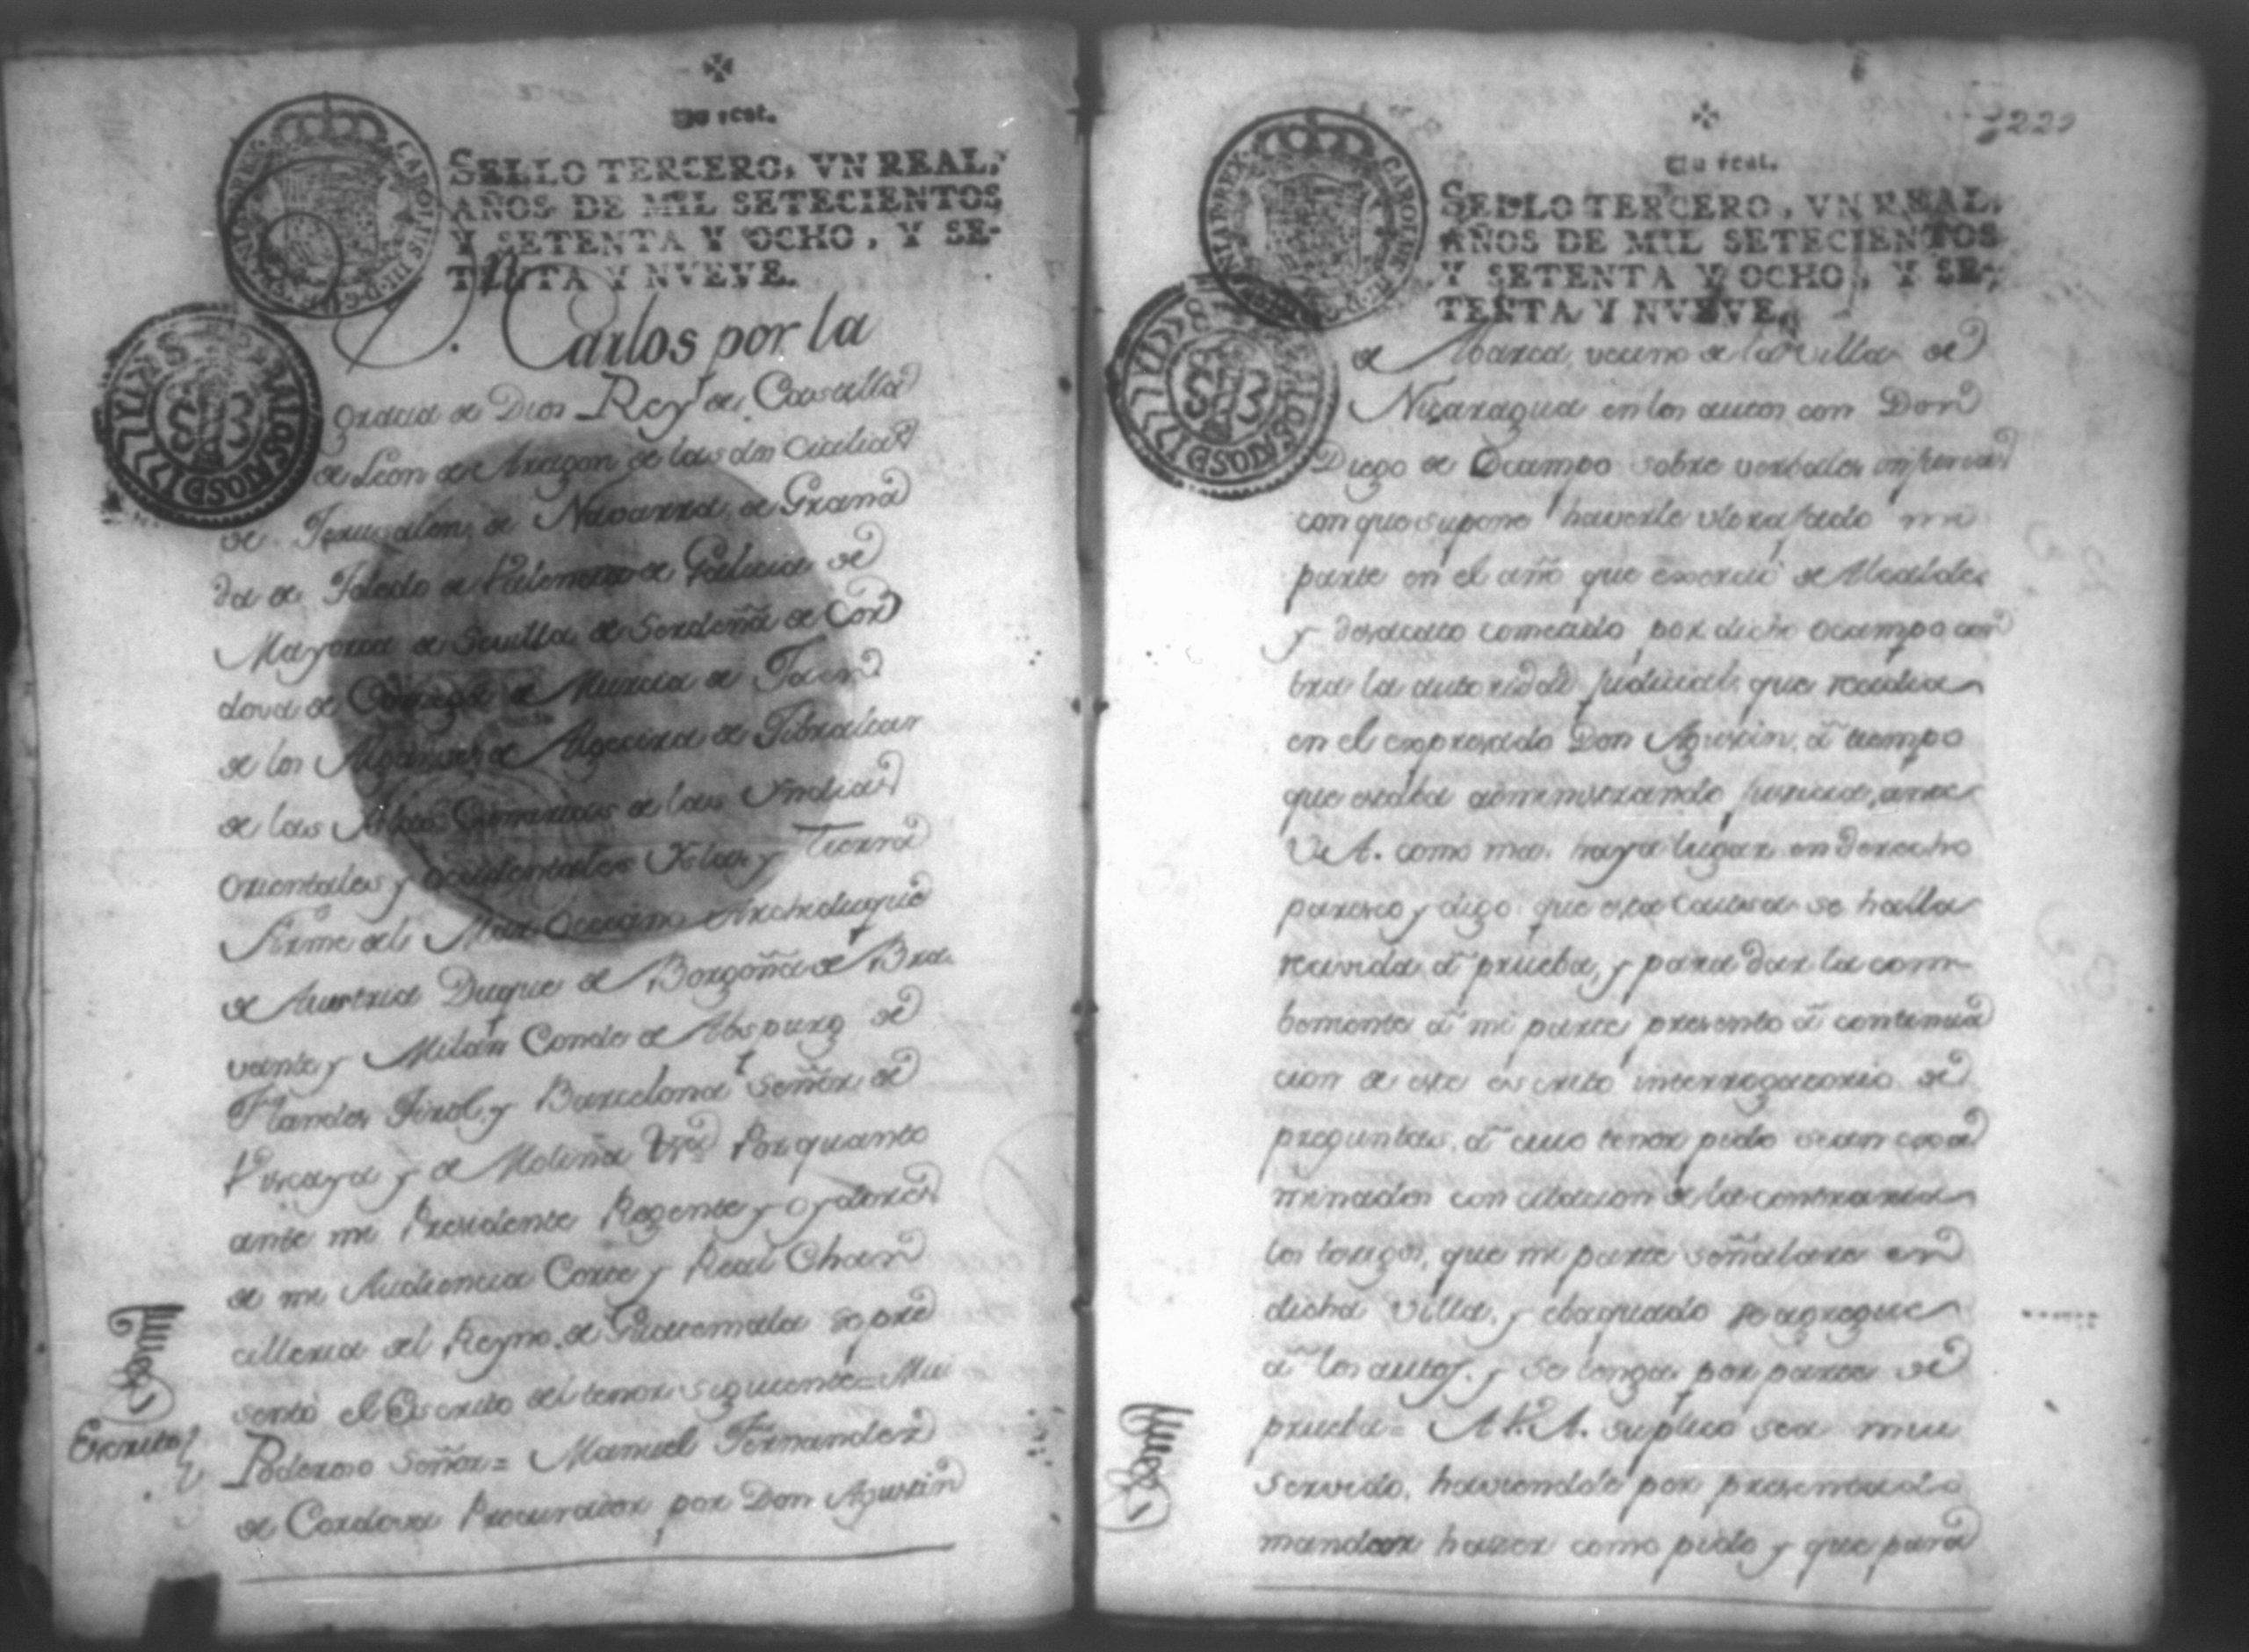 Un real.
SELLO TERCERO, VN REAL,
AÑOS DE MIL SETECIENTOS
Y SETENTA Y OCHO, Y SE-
TENTA Y NVEVE.
D. Carlos por la
gracia de Dios Rey de Castilla
de Leon de Aragon de las dos Cicilias
de Jerusalen de Navarra de Grana
da de Toledo de Valencia de Galicia de
Mayorca de Sevilla de Serdeña de Cor
dova de Corcega de Murcia de Jaen
de los Algarves de Algecira de Gibraltar
de las Islas Canarias de las Yndias
orientales y occidentales Yslas y Tierra
Firme del Mar Occeano Archiduque
de Austria Duque de Borgoña de Bra
vante y Milán Conde de Abspurg de
Flandes Tirol y Barcelona Señor de
Viscaya y de Molina &ca Por quanto
ante mi Presidente Regente y oydores
de mi Audiencia Corte y Real Chan
cilleria del Reyno de Guatemala se pre
sentó el Escrito del tenor siguiente = Mui
Poderoso Señor = Manuel Fernandez
de Cordova Procurador por Don Agustin
Escrito
CAROLUS III D. G.
CARLOS
1778
S 3
229
Un real.
SELLO TERCERO, VN REAL,
AÑOS DE MIL SETECIENTOS
Y SETENTA Y OCHO, Y SE-
TENTA Y NVEVE.
de Abarca, vecino de la Villa de
Nicaragua en los autos con Don
Diego de Ocampo sobre verbales injurias
con que supone haverle ultrajado mi
parte en el año que exerció de Alcalde
y desacato cometido por dicho Ocampo con
tra la autoridad judicial que recidia
en el expresado Don Agustin, á tiempo
que estaba administrando justicia, ante
V.A. como mas haya lugar en derecho
paresco y digo: que esta Causa se halla
recivida á prueba, y para dar la com
beniente á mi parte, presento á continua
cion de este escrito interrogatorio de
preguntas, á cuio tenor pido sean exa
minados con citacion de la contraria
los testigos, que mi parte señalare en
dicha Villa, y ebaquado se agregue
á los autos, y se tenga por parte de
prueba = A V.A. suplico sea mui
servido, haviendole por presentado
mandar hazer como pido y que para